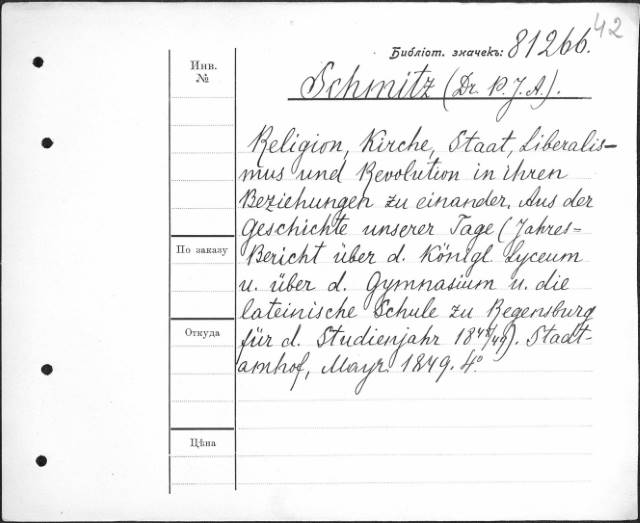 42
Библіот. значекъ: 81266.
Инв.
№
Schmitz (Dr. P. J. A.).
Religion, Kirche, Staat, Liberalis-
mus und Revolution in ihren
Beziehungen zu einander. Aus der
Geschichte unserer Tage (Jahres-
Bericht über d. Königl. Lyceum
По заказу
u. über d. Gymnasium u. die
lateinische Schule zu Regensburg
Откуда
für d. Studienjahr 1848/49). Stadt-
amhof, Mayr. 1849. 4°
Цѣна